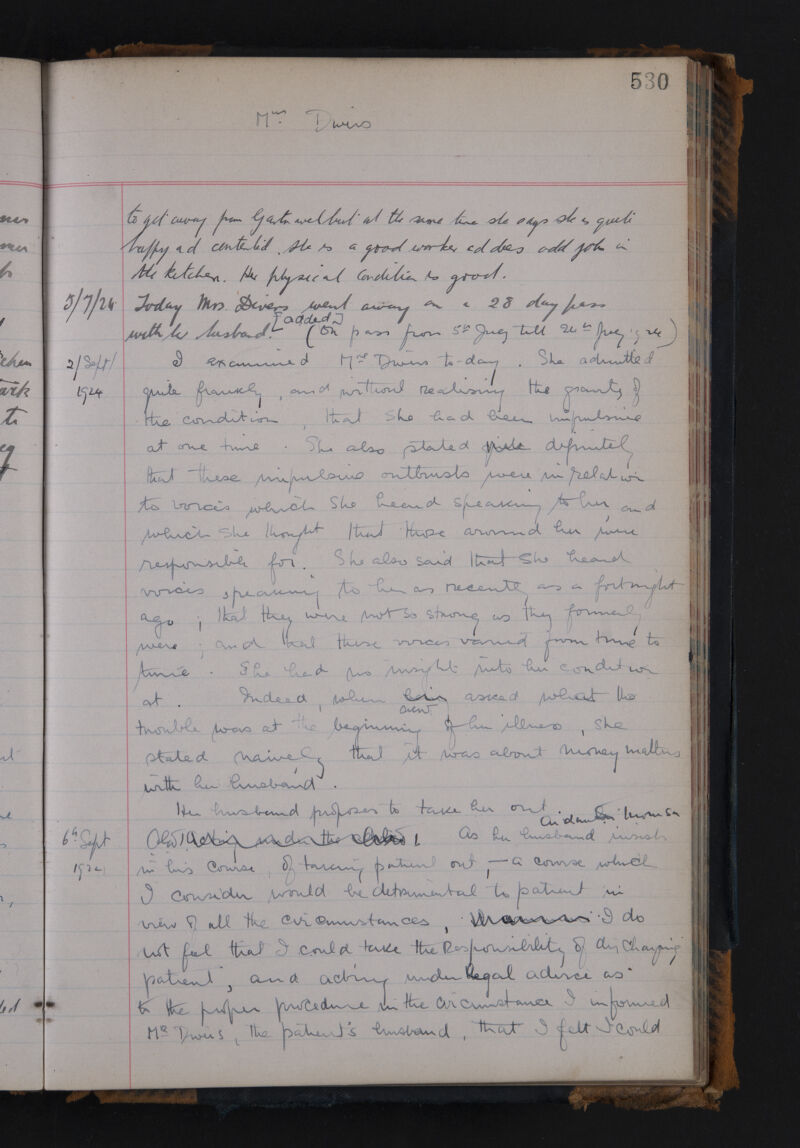 530
Mrs. Divers
to get away from Gartnavel but at the same time she says she is quite
happy and contented. She is a good worker and does odd jobs in
the kitchen. Her physical condition is good.
5/7/24 Today Mrs. Divers went away on a 28 day pass
with her husband. [added] (On pass from 5th July till 24th July 1924)
2/Sept/ I examined Mrs Divers to-day. She admitted
1924 quite frankly, and without realising the gravity of
the condition, that she had been impulsive
at one time. She also stated definitely
that these impulsive outbursts were in relation
to voices which she heard speaking to her, and
which she thought that those around her were
responsible for. She also said that she heard
voices speaking to her as recently as a fortnight
ago; that they were not so strong as they formerly
were; and that these voices varied from time to
time. She had no insight into her condition
at. Indeed, when asked what the
trouble was at the beginning of her illness, she
stated naively that it was about money matters
with her husband.
Her husband proposes to take her out
6th Sept acting under the As her husband insists
1924 in his course, of taking patient out, – a course which
I consider would be detrimental to patient in
view of all the circumstances, I do
not feel that I could take the Responsibility of discharging
patient, and acting under legal advice as
to the proper procedure in the circumstance I informed
Mr Divers, the patient's husband, that I felt I could